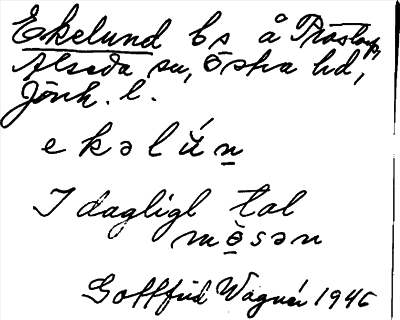 Ekelund bs å Prästorp,
Alseda sn, Östra hd,
Jönk. l.
e k ə l ú n
I dagligl tal
m ö̀ s ə n
Gottfrid Wagnér 1946